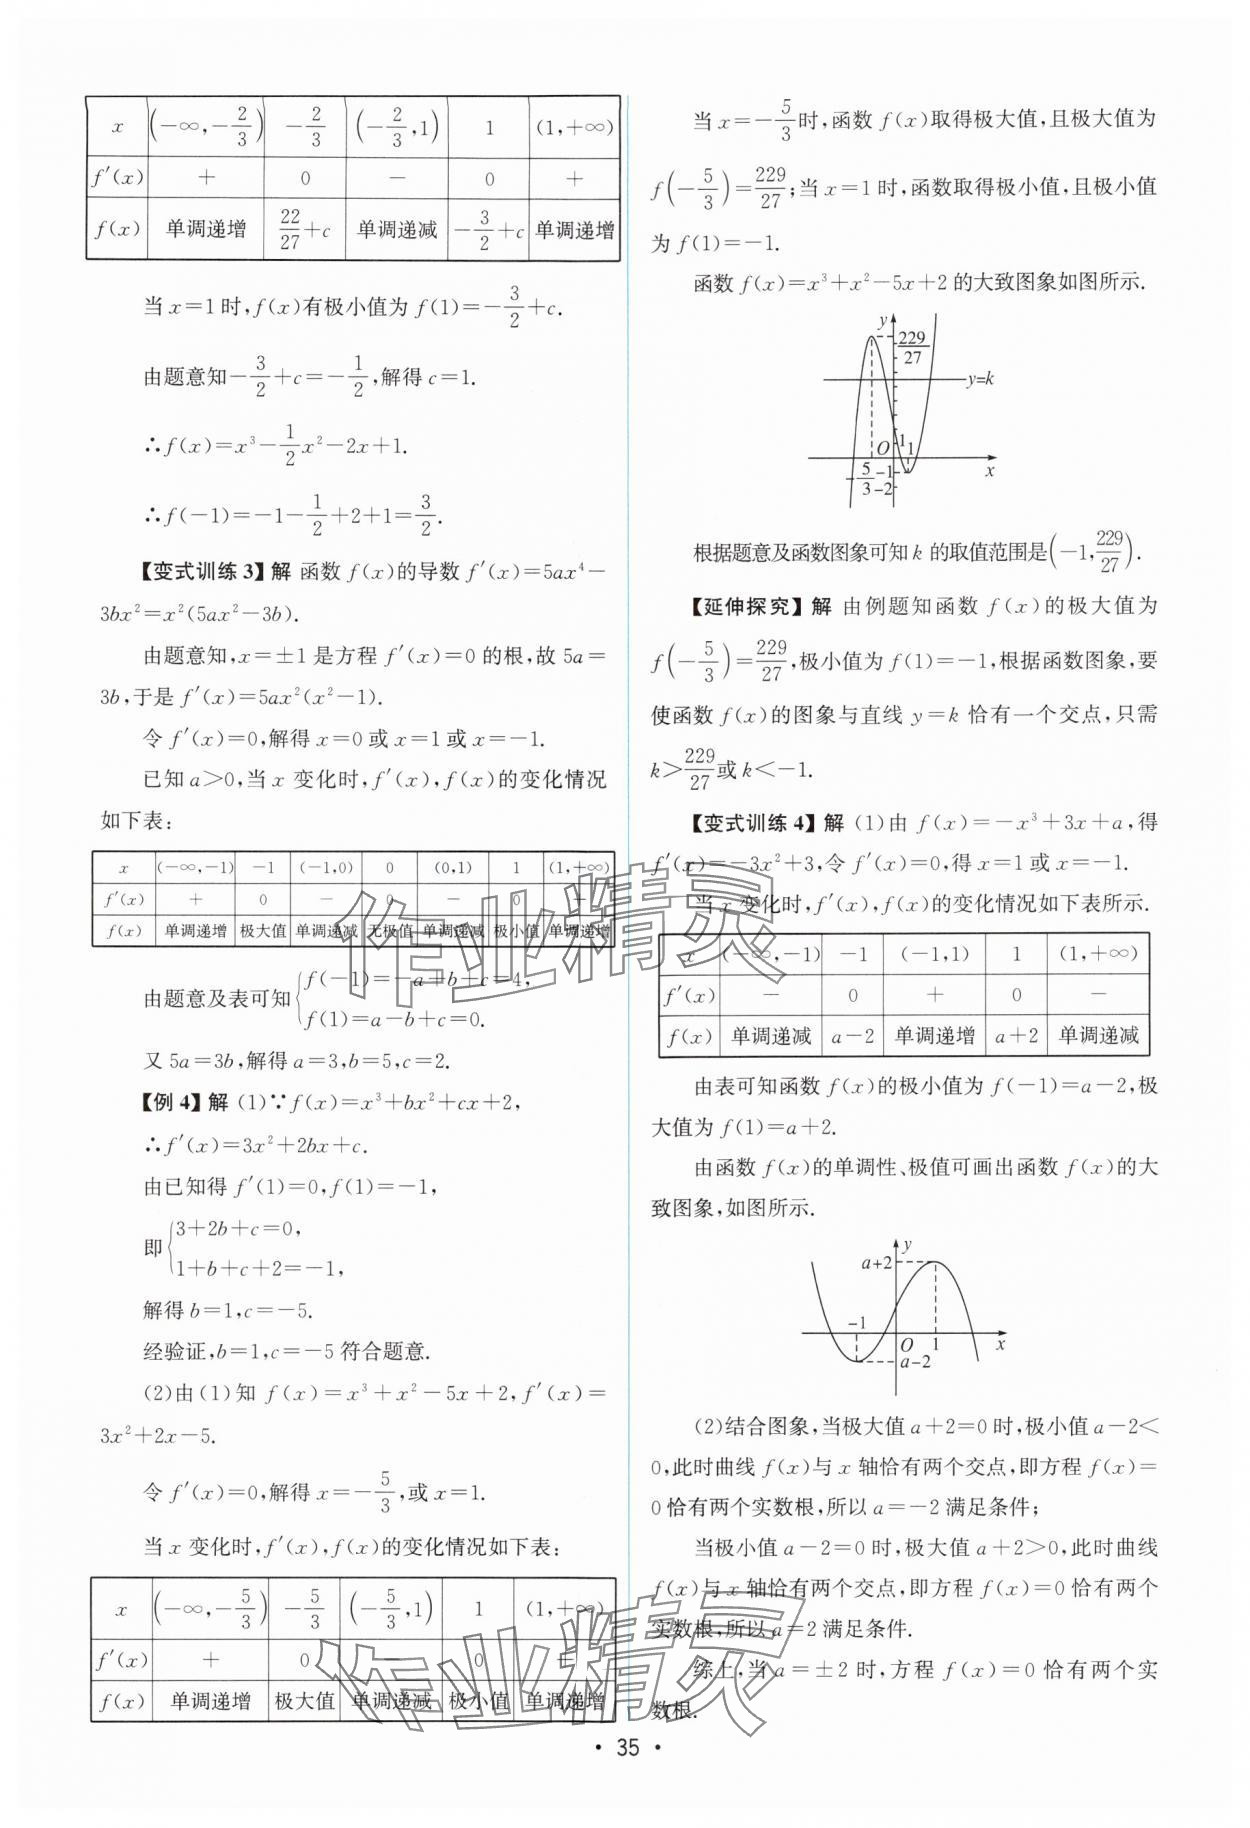 x (-∞,-2/3) -2/3 (-2/3,1) 1 (1,+∞)
f′(x) + 0 - 0 +
f(x) 单调递增 22/27+c 单调递减 -3/2+c 单调递增
当 x=1 时,f(x)有极小值为 f(1)=-3/2+c.
由题意知-3/2+c=-1/2,解得 c=1.
∴f(x)=x³-1/2x²-2x+1.
∴f(-1)=-1-1/2+2+1=3/2.
【变式训练 3】解 函数 f(x)的导数 f′(x)=5ax⁴-
3bx²=x²(5ax²-3b).
由题意知,x=±1 是方程 f′(x)=0 的根,故 5a=
3b,于是 f′(x)=5ax²(x²-1).
令 f′(x)=0,解得 x=0 或 x=1 或 x=-1.
已知 a>0,当 x 变化时,f′(x),f(x)的变化情况
如下表:
x (-∞,-1) -1 (-1,0) 0 (0,1) 1 (1,+∞)
f′(x) + 0 - 0 - 0 +
f(x) 单调递增 极大值 单调递减 无极值 单调递减 极小值 单调递增
由题意及表可知{f(-1)=-a+b+c=4,
f(1)=a-b+c=0.
又 5a=3b,解得 a=3,b=5,c=2.
【例 4】解 (1)∵f(x)=x³+bx²+cx+2,
∴f′(x)=3x²+2bx+c.
由已知得 f′(1)=0,f(1)=-1,
即{3+2b+c=0,
1+b+c+2=-1,
解得 b=1,c=-5.
经验证,b=1,c=-5 符合题意.
(2)由(1)知 f(x)=x³+x²-5x+2,f′(x)=
3x²+2x-5.
令 f′(x)=0,解得 x=-5/3,或 x=1.
当 x 变化时,f′(x),f(x)的变化情况如下表:
x (-∞,-5/3) -5/3 (-5/3,1) 1 (1,+∞)
f′(x) + 0 - 0 +
f(x) 单调递增 极大值 单调递减 极小值 单调递增
当 x=-5/3时,函数 f(x)取得极大值,且极大值为
f(-5/3)=229/27;当 x=1 时,函数取得极小值,且极小值
为 f(1)=-1.
函数 f(x)=x³+x²-5x+2 的大致图象如图所示.
y
229/27
y=k
O 1 1
x
-5/3 -1
-2
根据题意及函数图象可知 k 的取值范围是(-1,229/27).
【延伸探究】解 由例题知函数 f(x)的极大值为
f(-5/3)=229/27,极小值为 f(1)=-1,根据函数图象,要
使函数 f(x)的图象与直线 y=k 恰有一个交点,只需
k>229/27或 k<-1.
【变式训练 4】解 (1)由 f(x)=-x³+3x+a,得
f′(x)=-3x²+3,令 f′(x)=0,得 x=1 或 x=-1.
当 x 变化时,f′(x),f(x)的变化情况如下表所示.
x (-∞,-1) -1 (-1,1) 1 (1,+∞)
f′(x) - 0 + 0 -
f(x) 单调递减 a-2 单调递增 a+2 单调递减
由表可知函数 f(x)的极小值为 f(-1)=a-2,极
大值为 f(1)=a+2.
由函数 f(x)的单调性、极值可画出函数 f(x)的大
致图象,如图所示.
y
a+2
-1
O 1 x
a-2
(2)结合图象,当极大值 a+2=0 时,极小值 a-2<
0,此时曲线 f(x)与 x 轴恰有两个交点,即方程 f(x)=
0 恰有两个实数根,所以 a=-2 满足条件;
当极小值 a-2=0 时,极大值 a+2>0,此时曲线
f(x)与 x 轴恰有两个交点,即方程 f(x)=0 恰有两个
实数根,所以 a=2 满足条件.
综上,当 a=±2 时,方程 f(x)=0 恰有两个实
数根.
作业精灵
作业精灵
• 35 •